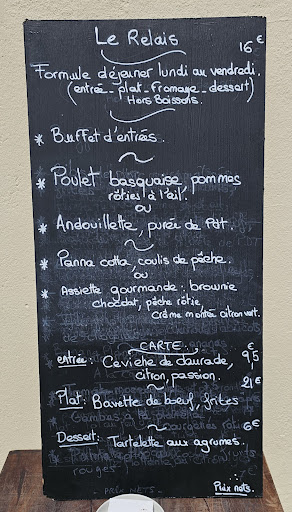 Le Relais
16 €
Formule déjeuner lundi au vendredi.
(entrée - plat - fromage - dessert)
Hors Boissons.
* Buffet d'entrées.
* Poulet basquaise, pommes
rôties à l'ail.
ou
* Andouillette, purée de PDT.
* Panna cotta, coulis de pêche.
ou
* Assiette gourmande : brownie
chocolat, pêche rôtie,
crème montée citron vert.
CARTE :
entrée : Ceviche de daurade, 9€5
citron, passion.
Plat : Bavette de bœuf, frites 21€
Dessert : Tartelette aux agrumes. 6€
Prix nets.